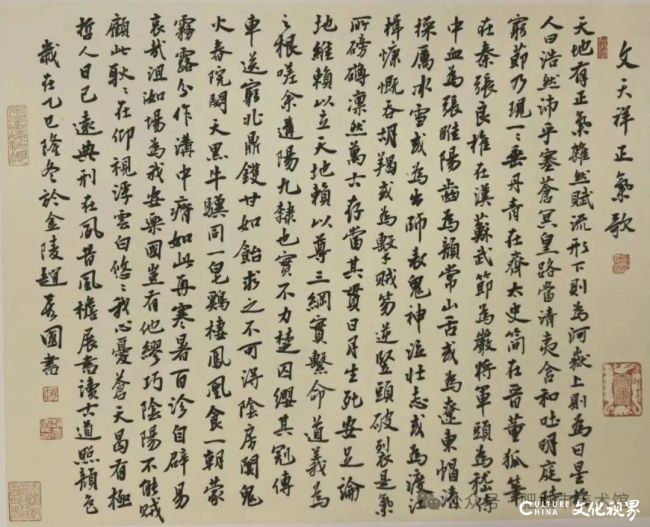 文天祥正氣歌
天地有正氣雜然賦流形下則為河嶽上則為日星於
人曰浩然沛乎塞蒼冥皇路當清夷含和吐明庭時
窮節乃現〻垂丹青在齊太史簡在晉董狐筆
在秦張良椎在漢蘇武節為嚴將軍頭為嵇侍
中血為張睢陽齒為顏常山舌或為遼東帽清
操厲冰雪或為出師表鬼神泣壯志或為渡江
楫慷慨吞胡羯或為擊賊笏逆豎頭破裂是氣
所磅礴凜然萬古存當其貫日月生死安足論
地維賴以立天地賴以尊三綱實繫命道義為
之根嗟余遘陽九隸也實不力楚囚纓其冠傳
車送窮北鼎鑊甘如飴求之不可得陰房闃鬼
火春院閟天黑牛驥同一皂鷄棲鳳凰食一朝蒙
霧露分作溝中瘠如此再寒暑百沴自辟易
哀哉沮洳場為我安樂國豈有他繆巧陰陽不能賊
顧此耿〻在仰視浮雲白悠〻我心憂蒼天曷有極
哲人日已遠典刑在夙昔風檐展書讀古道照顏色
歲在乙巳隆冬於金陵趙國書
公众号
美术馆
CULTURE CHINA 文化视界